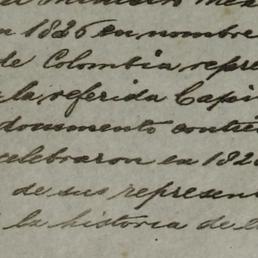 n 1826 en nombre
de Colombia repre
la referida Capi
documento contie
celebraron en 182
de sus represen
la historia de